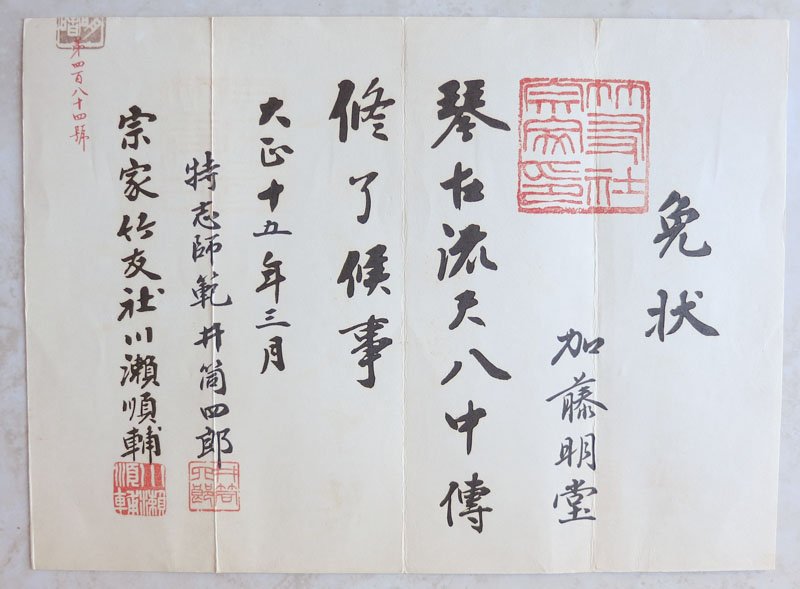 免状
竹友社宗家印
加藤明堂
琴古流尺八中傳
修了候事
大正十五年三月
特志師範井筒四郎
宗家竹友社川瀬順輔
川瀬順輔
第四百八十四號